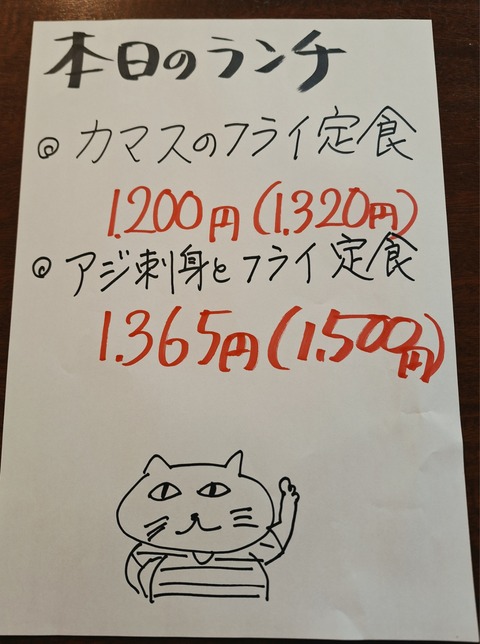 本日のランチ
◎ カマスのフライ定食
1.200円(1.320円)
◎ アジ刺身とフライ定食
1.365円(1.500円)